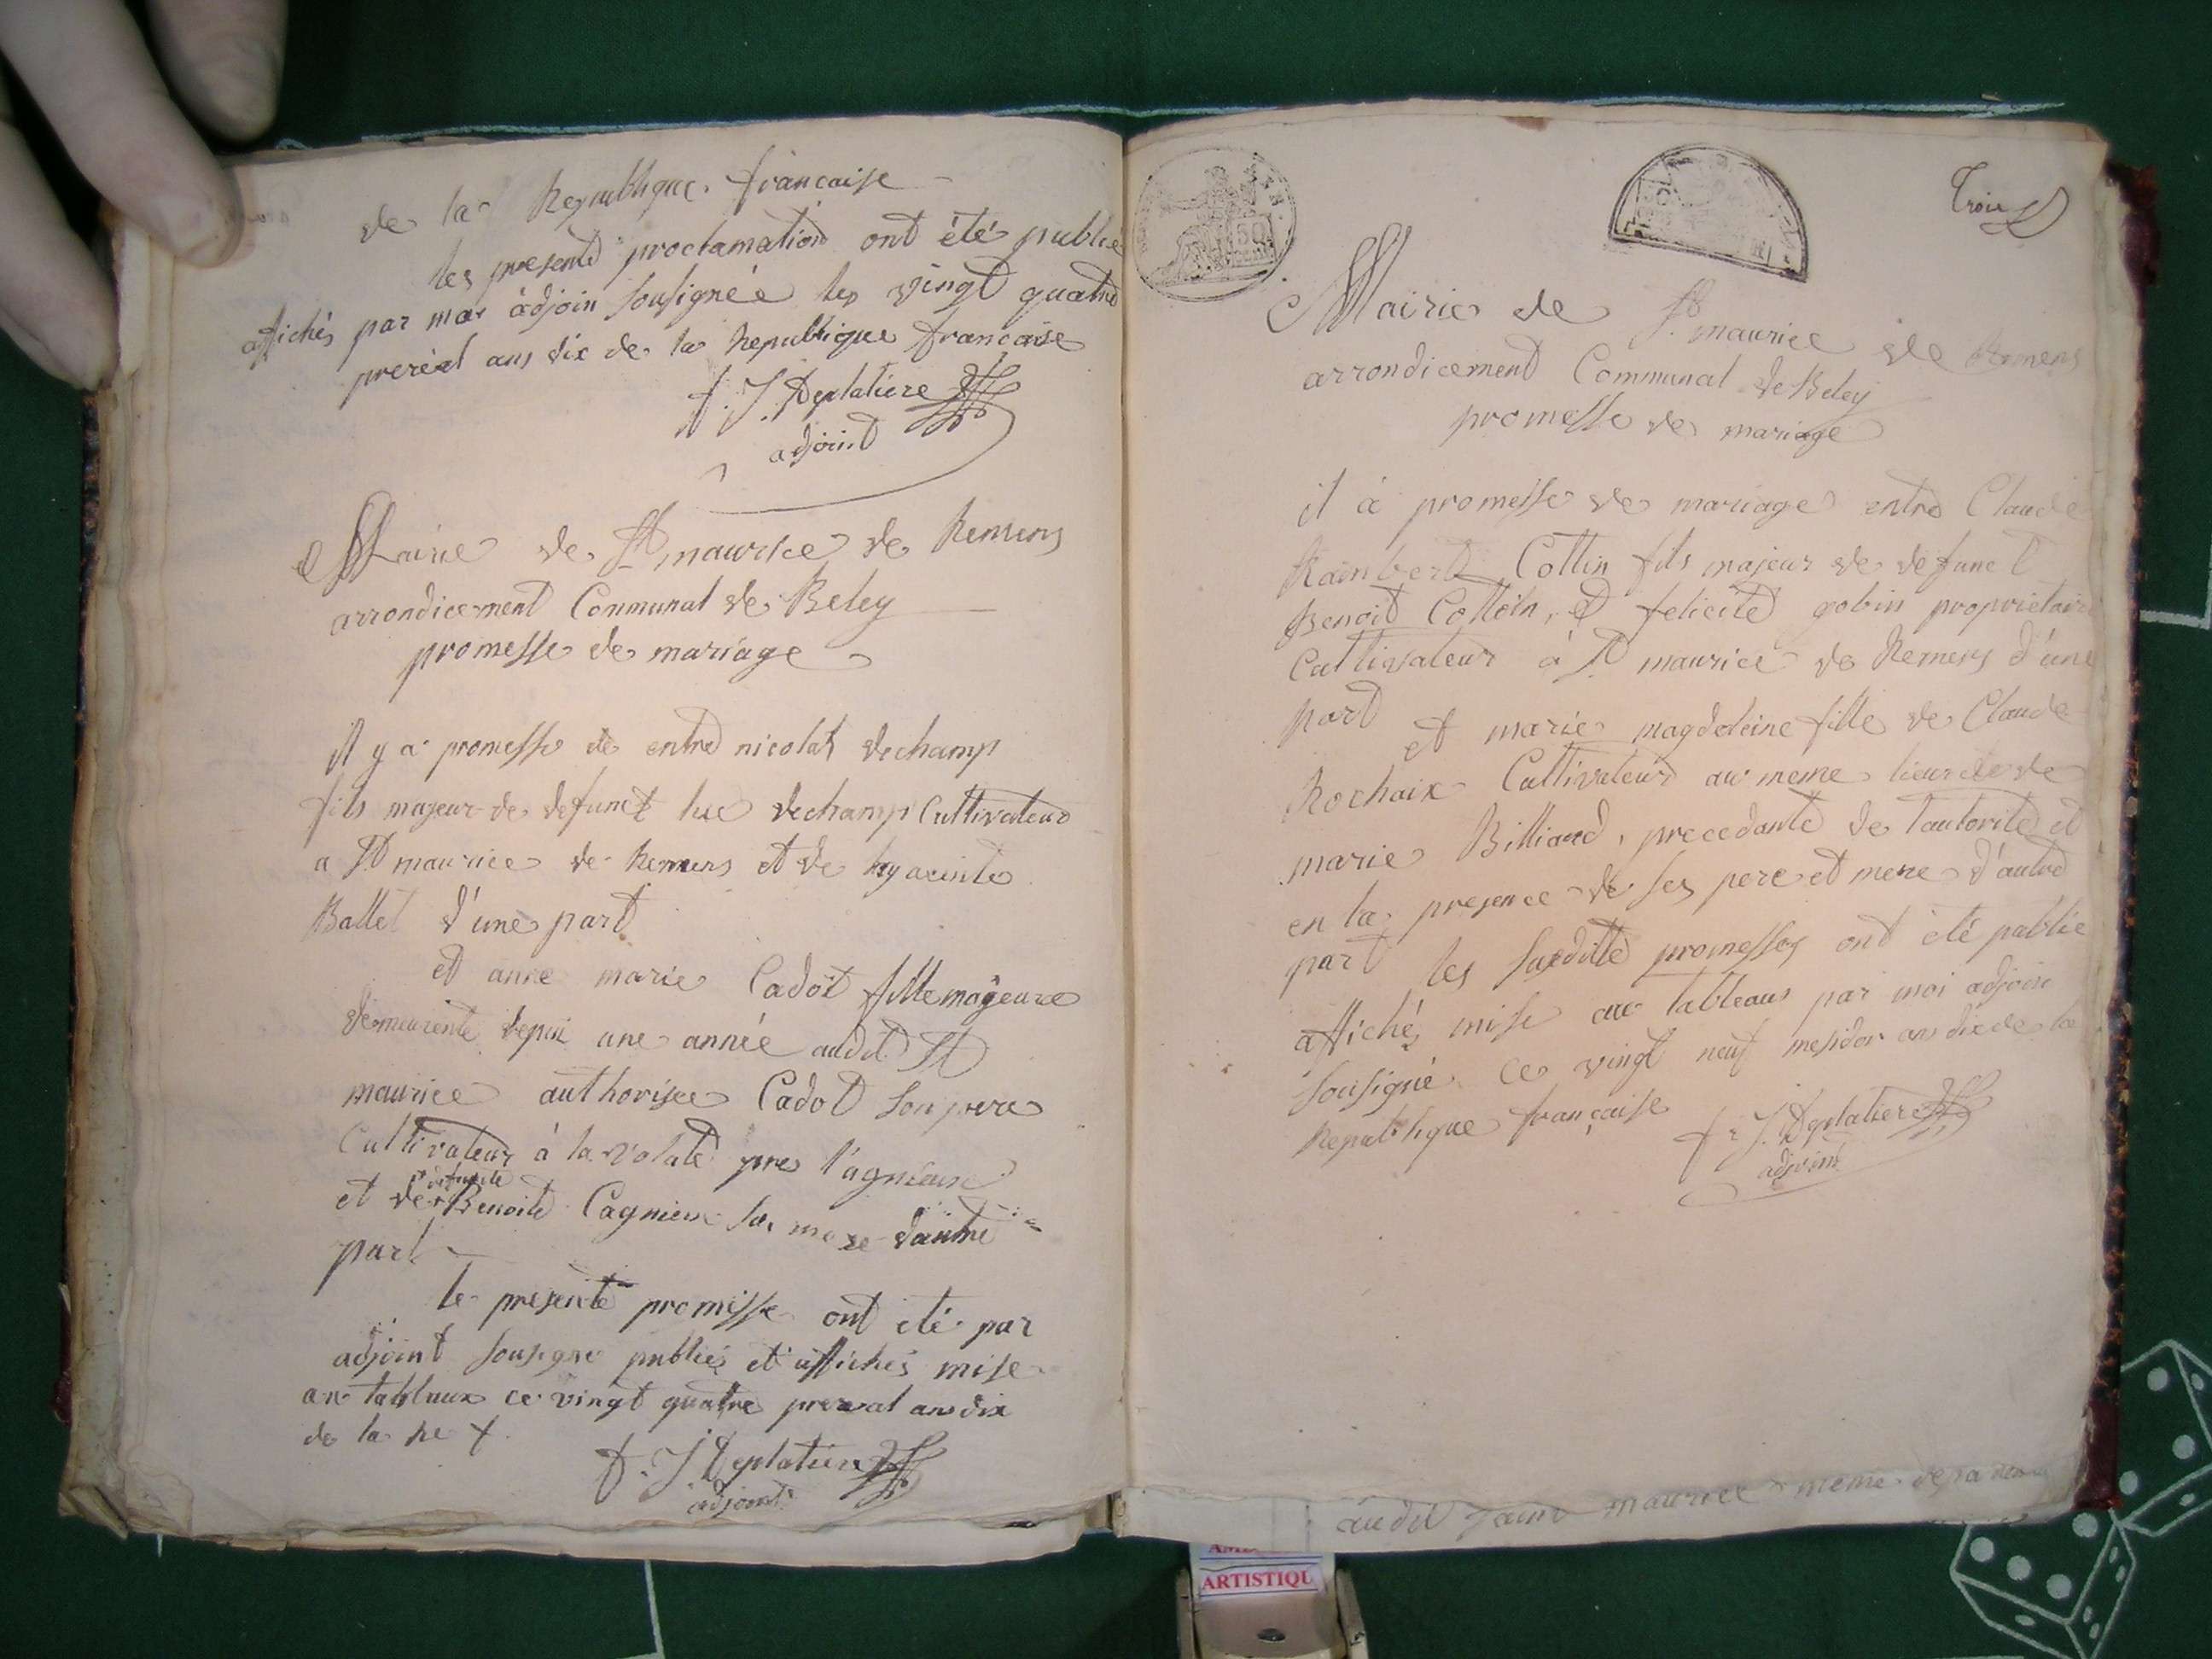 de la Republique française
les presente proclamation ont été publié
affichés par moi adjoin sousignéé les vingt quatre
preréal ans dix de la Republique francaise
f. J. Deplatiere
adjoint
Mairie de St maurice de Remens
arrondicement Communal de Beley
promesse de mariage
il y a promesse de entre nicolas dechamp
fils majeur de defunct luc dechamp Cultivateur
a St maurice de Remens et de hyacinte
Ballet d'une part
et anne marie Cadot fille majeure
demeurente depui une année audit St
maurice authorisee Cadot son pere
Cultivateur à la valate pres l'agnieux
defuncte
et de Benoite Cagnieux sa mere d'autre
part
le presente promisse ont eté par
adjoint sousigne publiés et affichés mise
au tableaux ce vingt quatre prereal an dix
de la Re f.
f. J. Deplatiere
adjoint
50
Trois
Mairie de St maurice de Remens
arrondicement Communal de Beley
promesse de mariage
il à promesse de mariage entre Claude
Rambert Collin fils majeur de defunct
Benoit Colloin, et felicité gobin proprietaire
Cultivateur à St maurice de Remens d'une
part et marie magdeleine fille de Claude
Rochaix Cultivateur au meme lieu et de
marie Billiard, precedante de l'autorité et
en la presence de ses pere et mere d'autre
part les susditte promesses ont été publie
affichés mise au tableaux par moi adjoin
sousigné ce vingt neuf mesidor an dix de la
Republique française
f. J. Deplatiere
adjoint
audit saint maurice meme
ARTISTIQU